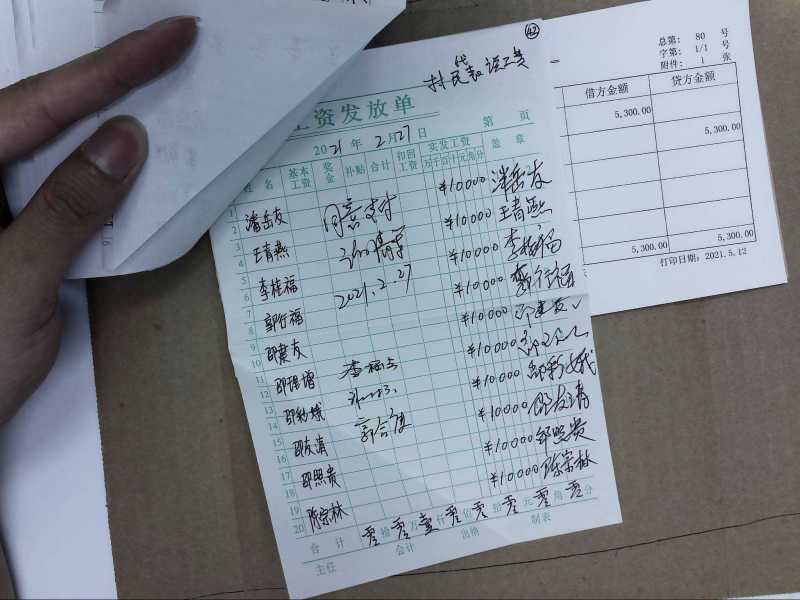 ㊷
村民代表误工费
工资发放单
2021年2月27日 第 页
姓名 基本工资 奖金 补贴 合计 扣回工资 实发工资 盖章
万千百十元角分
1 潘岳友 ¥10000 潘岳友
2
3 王青燕 同意支付 ¥10000 王青燕
4
5 李桂福 ¥10000 李桂福
6
7 郭行福 2021.2.27 ¥10000 郭行福
8
9 邵冀友 ¥10000
10
11 邵理增 ¥10000
12
13 邵彩娥 ¥10000 邵彩娥
14
15 邵友清 ¥10000 邵友清
16
17 邵照贵 ¥10000 邵照贵
18
19 陈宗林 ¥10000 陈宗林
20
合计 零拾零万壹仟零佰零拾零元零角零分
主任 会计 出纳 制表
总第: 80 号
字第: 1/1 号
附件: 1 张
借方金额 贷方金额
5,300.00
5,300.00
5,300.00 5,300.00
打印日期: 2021.5.12
6